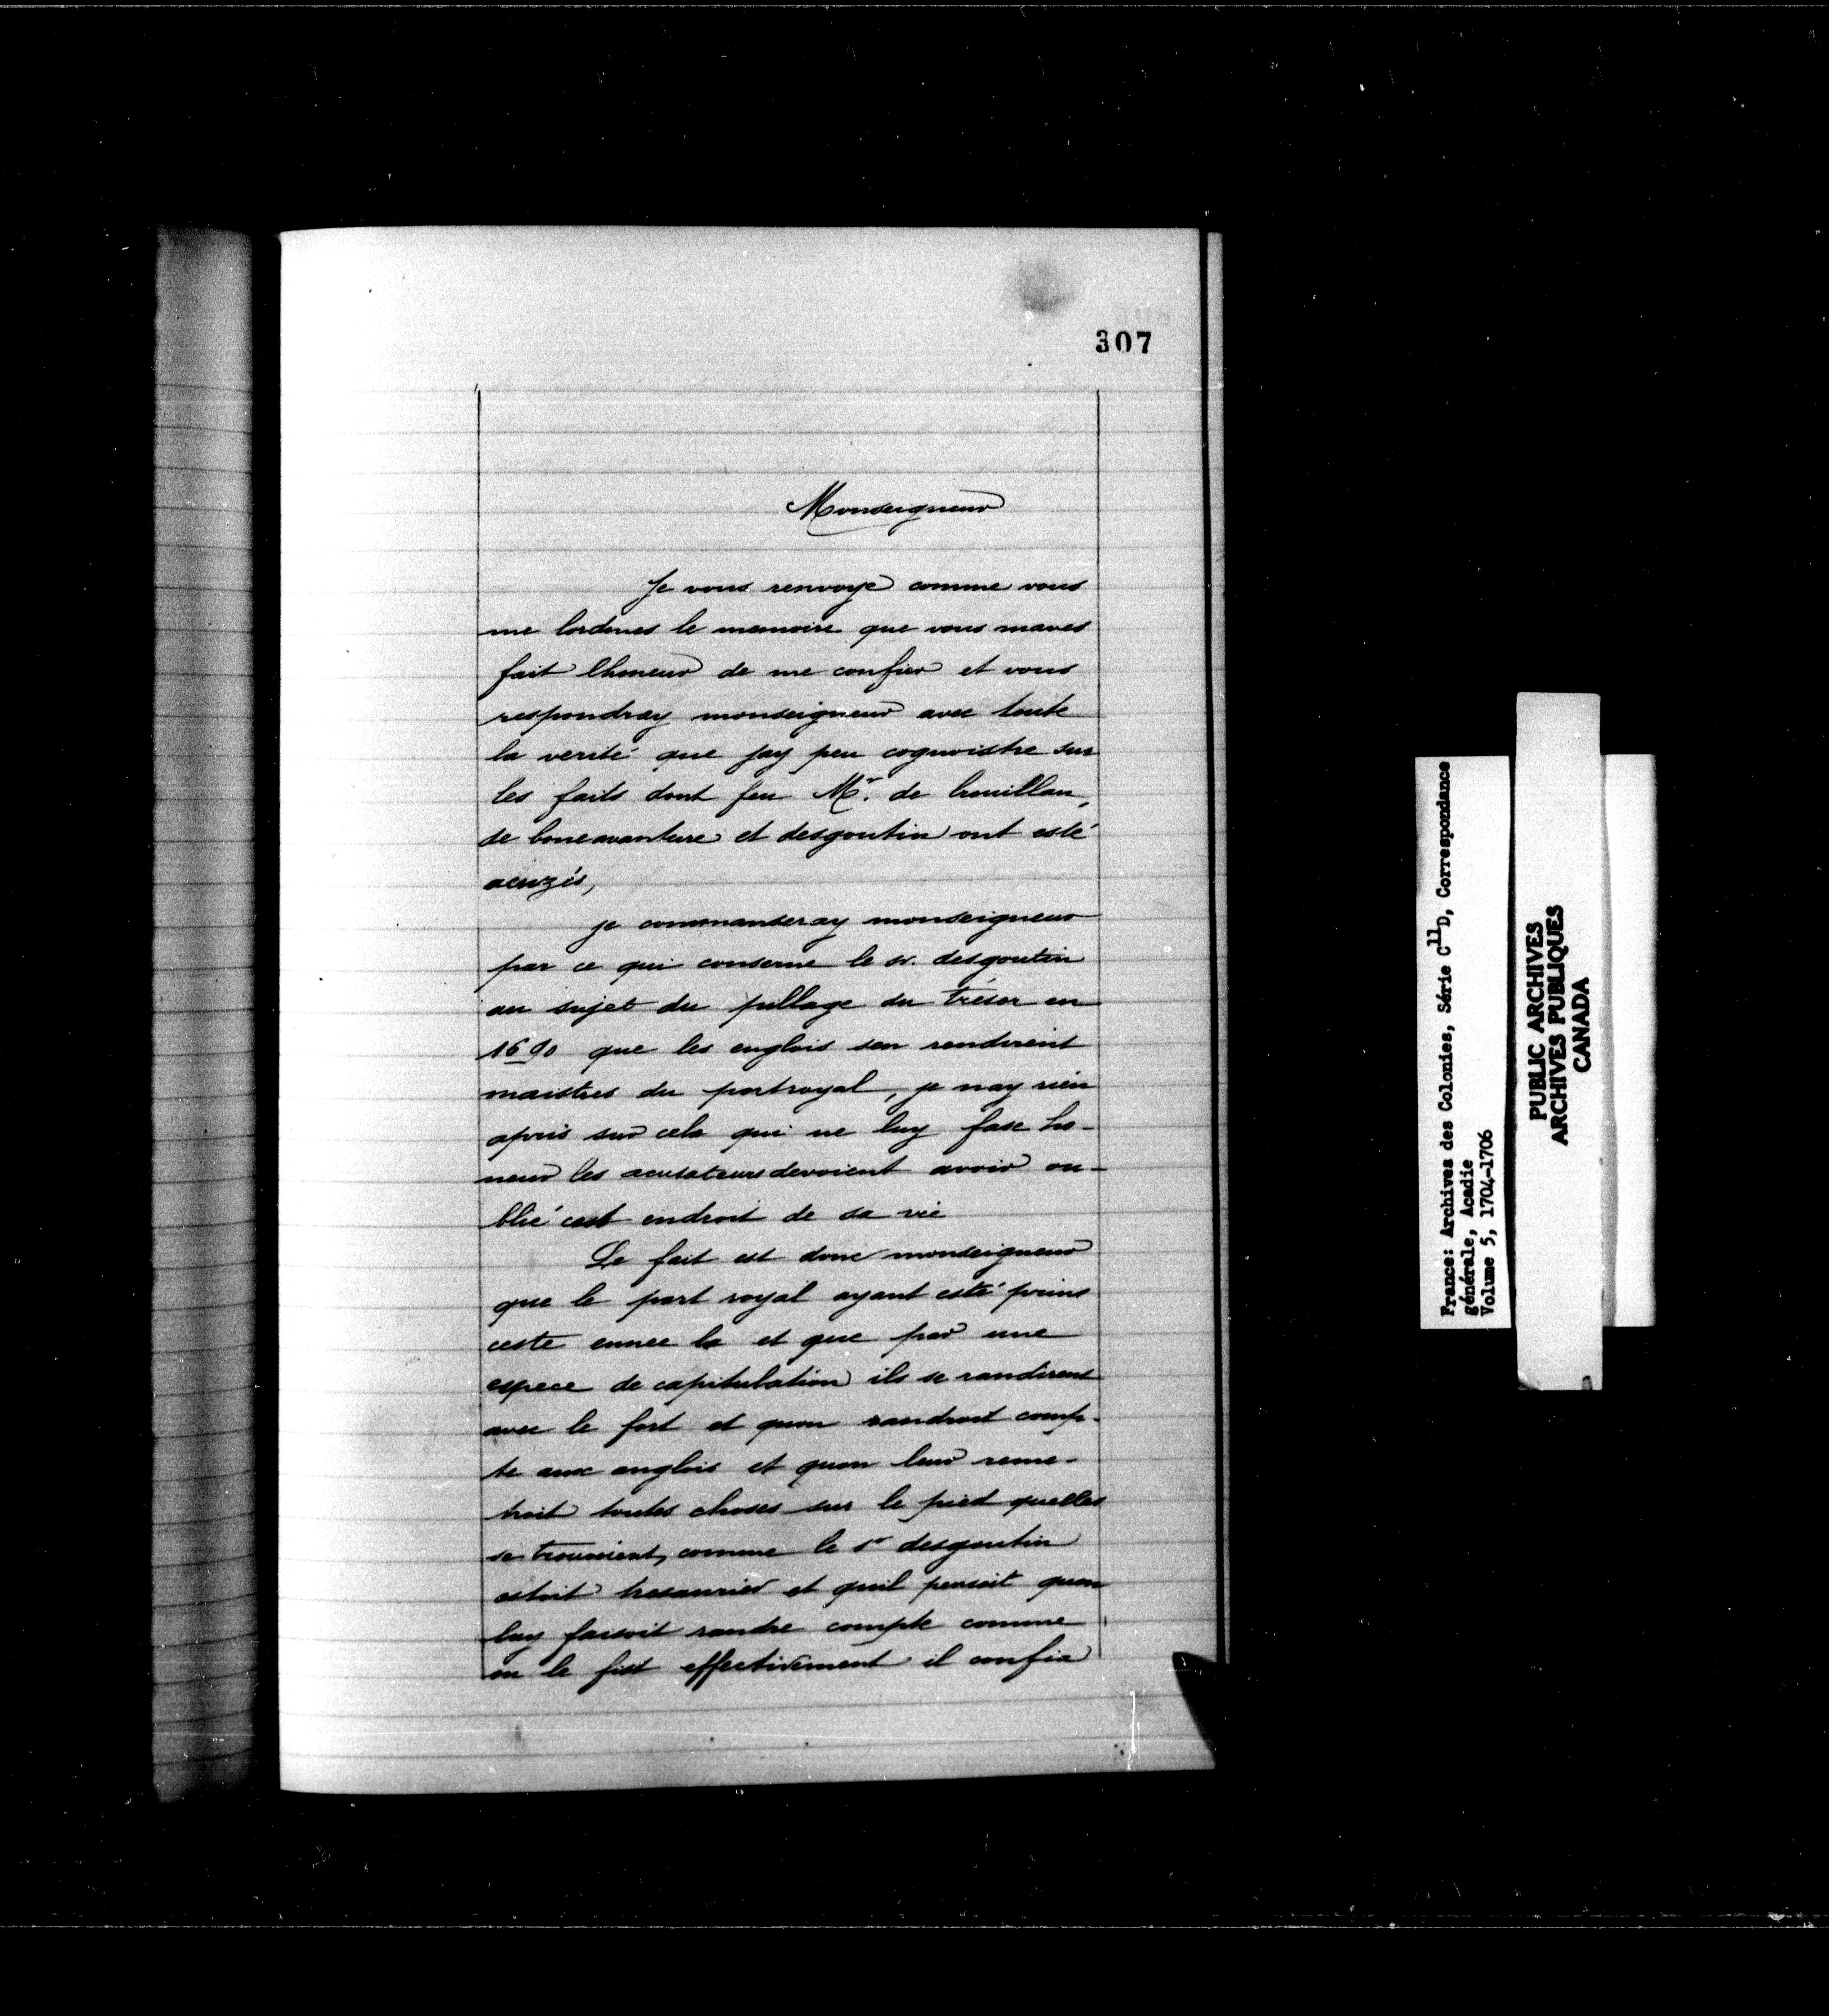 307
Monseigneur
Je vous renvoye comme vous
me lordones le memoire que vous maves
fait lhoneur de me confier et vous
respondray monseigneur avec toute
la verité que jay peu cognoistre sur
les faits dont feu Mr. de brouillan,
de boneavanture et desgoutin ont esté
acuzés,
je commanseray monseigneur
par ce qui conserne le sr. desgoutin
au sujet du pillage du trésor en
1690 que les englois sen rendirent
maistres du portroyal, je nay rien
apris sur cela qui ne luy fase ho-
neur les acusateurs devoient avoir ou-
blié cest endroit de sa vie
Le fait est donc monseigneur
que le port royal ayant esté prins
ceste ennee la et que par une
espece de capitulation ils se randirent
avec le fort et quon randroit comp-
te aux anglois et quon leur reme-
troit toutes choses sur le pied quelles
se trouvoient, comme le sr desgoutin
estoit tresaurier et quil pensoit quon
luy fairoit randre compte comme
on le fist effectivement il confia
France: Archives des Colonies, Série C11D, Correspondance
générale, Acadie
Volume 5, 1704-1706
PUBLIC ARCHIVES
ARCHIVES PUBLIQUES
CANADA